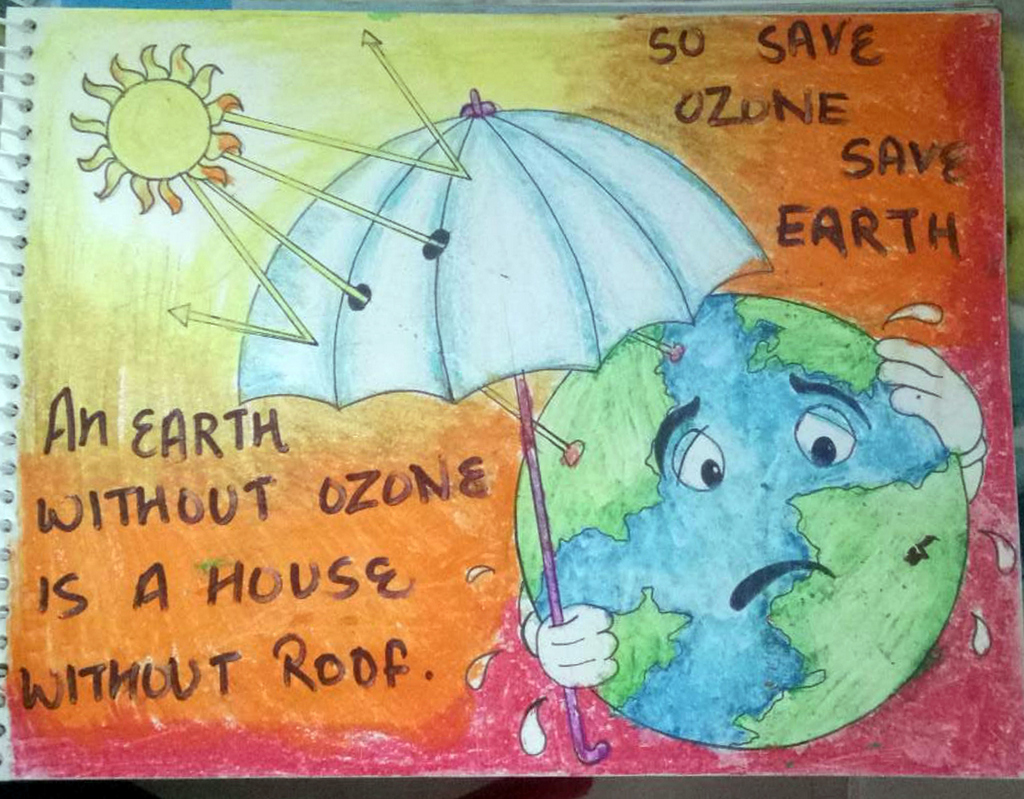 SO SAVE
OZONE
SAVE
EARTH
An EARTH
WITHOUT OZONE
IS A HOUSE
WITHOUT ROOF.